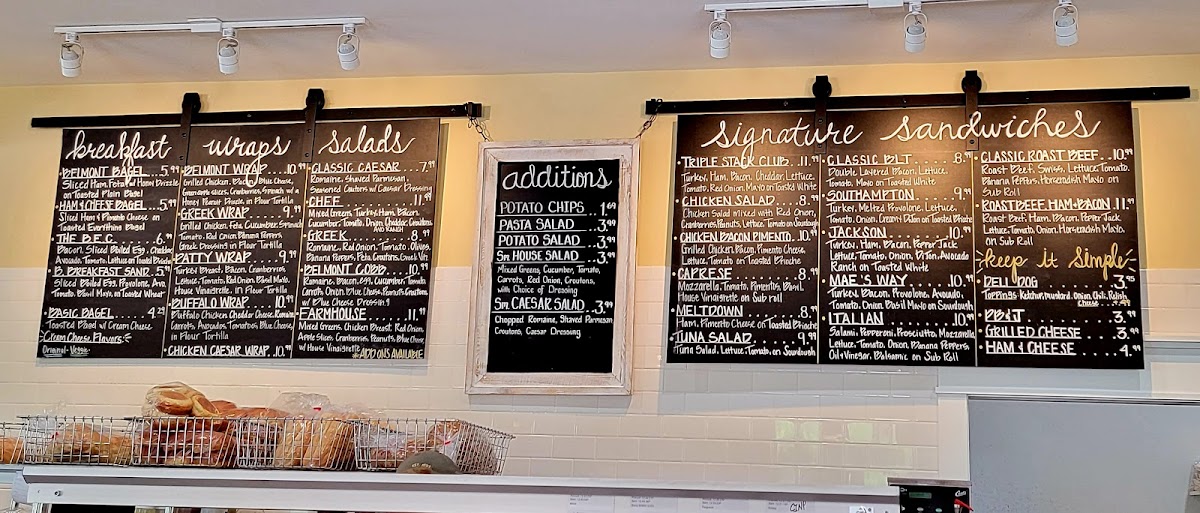 breakfast
BELMONT BAGEL 5.99
Sliced Ham, Feta w/ Ham Drizzle
on Toasted Plain Bagel
HAM & CHEESE BAGEL 5
Sliced Ham & Pimento Cheese on
Toasted Everything Bagel
THE B.E.C. 6
Bacon, Sliced Boiled Egg, Cheddar,
Avocado, Tomato, Lettuce on Toasted
B. BREAKFAST SAND. 5.99
Ham, Sliced Boiled Egg, Provolone, Avo,
Tomato, Basil Mayo on Toasted Wheat
BASIC BAGEL 4.29
Toasted Bagel w/ Cream Cheese
Cream Cheese Flavors:
Original - Veggie
wraps
BELMONT WRAP 10.99
Grilled Chicken, Bacon, Blue Cheese,
apple slices, Cranberries, Spinach w/ a
Honey Peanut Drizzle in Flour Tortilla
GREEK WRAP 9.99
Grilled Chicken, Feta, Cucumber, Spinach
Tomato, Red Onion, Banana Peppers
Greek Dressing in Flour Tortilla
PATTY WRAP 9.99
Turkey Breast, Bacon, Cranberries,
Lettuce, Tomato, Red Onion, Basil Mayo
House Vinaigrette, in Flour Tortilla
BUFFALO WRAP 10.99
Buffalo Chicken, Cheddar Cheese, Romaine
Carrots, Avocados, Tomatoes, Blue Cheese,
in Flour Tortilla
CHICKEN CAESAR WRAP 10.99
salads
CLASSIC CAESAR 7.99
Romaine, Shaved Parmesan,
Seasoned Croutons w/ Caesar Dressing
CHEF 11.99
Mixed Greens, Turkey, Ham, Bacon,
Cucumber, Tomato, Onion, Cheddar, Croutons
AND RANCH
GREEK 8.99
Romaine, Red Onion, Tomato, Olives,
Banana Peppers, Feta, Croutons, Greek Vin
BELMONT COBB 10.99
Romaine, Bacon, egg, cucumber, Tomato
Carrots, Onion, Blue Cheese, Peanuts, Croutons
w/ Blue Cheese Dressing
FARMHOUSE 11.99
Mixed Greens, Chicken Breast, Red Onion,
Apple Slices, Cranberries, Peanuts, Blue Cheese,
w/ House Vinaigrette
*ADD ONS AVAILABLE
additions
POTATO CHIPS 1.69
PASTA SALAD 3.99
POTATO SALAD 3.99
Sm HOUSE SALAD 3.99
Mixed Greens, Cucumber, Tomato,
Carrots, Red Onion, Croutons,
with Choice of Dressing
Sm CAESAR SALAD 3.99
Chopped Romaine, Shaved Parmesan
Croutons, Caesar Dressing
signature sandwiches
TRIPLE STACK CLUB 11.99
Turkey, Ham, Bacon, Cheddar, Lettuce,
Tomato, Red Onion, Mayo on Toasted White
CHICKEN SALAD 8.99
Chicken Salad mixed with Red Onion,
Cranberries, Peanuts, Lettuce, Tomato on Sourdough
CHICKEN BACON PIMENTO 10.99
Grilled Chicken, Bacon, Pimento Cheese,
Lettuce, Tomato on Toasted Brioche
CAPRESE 8.99
Mozzarella, Tomato, Pimentos, Basil
House Vinaigrette on Sub roll
MELTDOWN 8.99
Ham, Pimento Cheese on Toasted Brioche
TUNA SALAD 9.99
Tuna Salad, Lettuce, Tomato, on Sourdough
CLASSIC BLT 8.99
Double Layered Bacon, Lettuce,
Tomato, Mayo on Toasted White
SOUTHAMPTON 9.99
Turkey, Melted Provolone, Lettuce,
Tomato, Onion, Cream & Dijon on Toasted Brioche
JACKSON 10.99
Turkey, Ham, Bacon, Pepper Jack
Lettuce, Tomato, Onion, Dijon, Avocado
Ranch on Toasted White
MAE'S WAY 10.99
Turkey, Bacon, Provolone, Avocado,
Tomato, Onion, Basil Mayo on Sourdough
ITALIAN 10.99
Salami, Pepperoni, Prosciutto, Mozzarella
Lettuce, Tomato, Onion, Banana Peppers,
Oil & Vinegar, Balsamic on Sub Roll
CLASSIC ROAST BEEF 10.99
Roast Beef, Swiss, Lettuce, Tomato,
Banana Peppers, Horseradish Mayo on
Sub Roll
ROAST BEEF, HAM & BACON 11.99
Roast Beef, Ham, Bacon, Pepper Jack
Lettuce, Tomato, Onion, Horseradish Mayo,
on Sub Roll
keep it Simple
DELI DOG 3.95
Toppings: Ketchup, mustard, Onion, Chili, Relish
Cheese .49
PB&J 3.99
GRILLED CHEESE 3.99
HAM & CHEESE 4.99